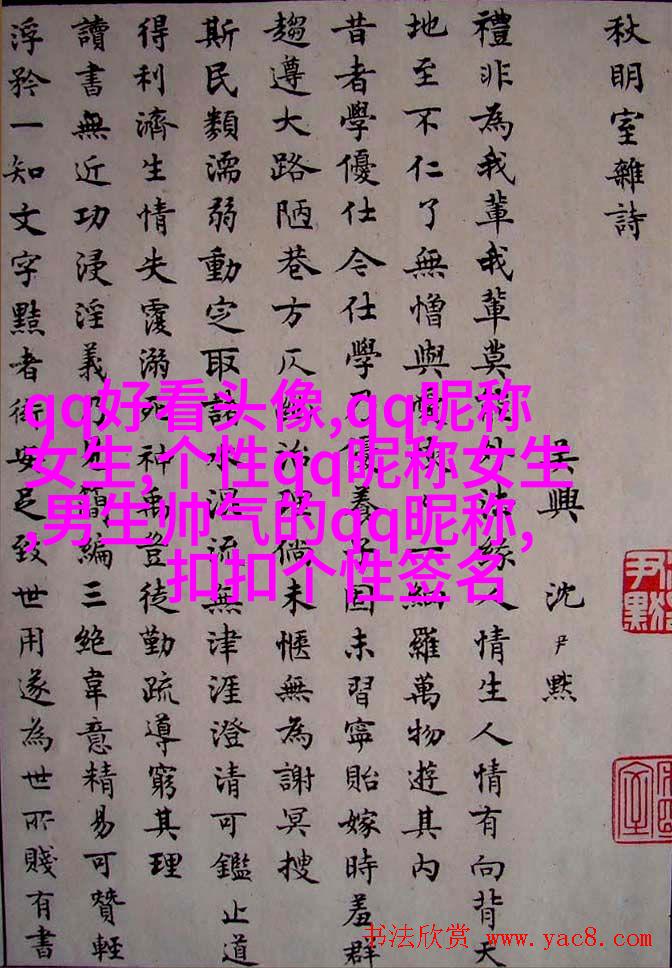 秋明室雜詩
吳興 沈尹默
禮非為我輩我輩莫外法緣人情生人情有向背天
地至不仁了無憎與一網羅萬物遊其內
昔者學優仕今仕學優養子固未習寧貽嫁時羞群
趨遵大路陋巷方仄治理倘未愜無為謝冥搜
斯民類濡弱動定取諸水濕流無津涯澄清可鑑止道
得利濟生情失覆溺死神禹豈徒勤疏導窮其理
讀書無近功浸淫義乃見簡編三絕韋意精易可贊輕
浮矜一知文字黠者衒安足致世用遂為世所賤有書
qq好看头像,qq昵称
女生,个性qq昵称女生
,男生帅气的qq昵称,
扣扣个性签名
书法欣赏 www.yac8.com